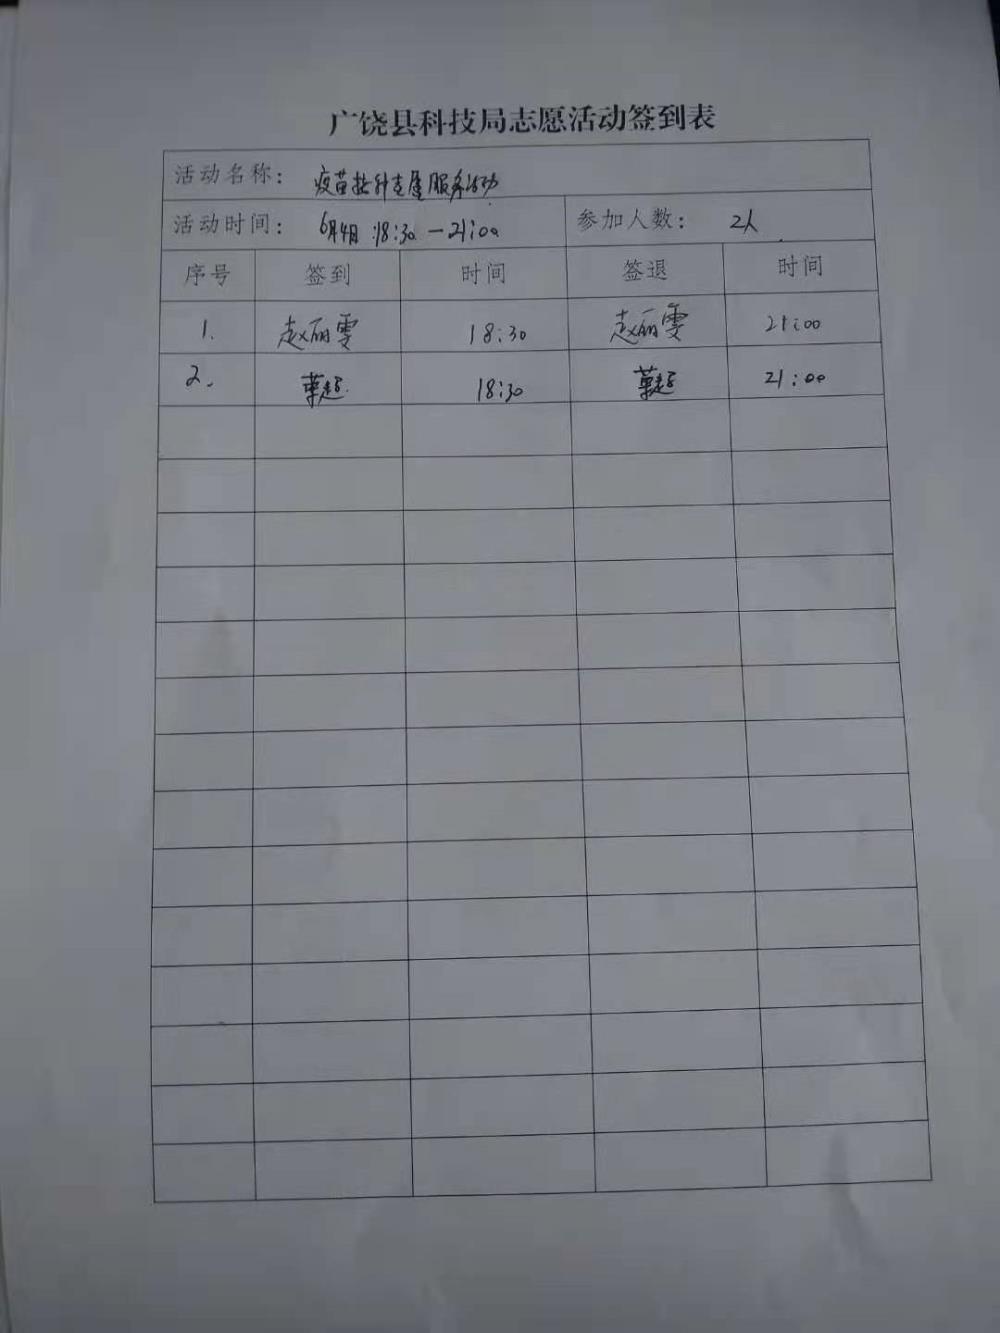 广饶县科技局志愿活动签到表
活动名称: 疫苗接种志愿服务活动
活动时间: 6月4日 18:30 — 21:00 参加人数: 2人
序号 签到 时间 签退 时间
1. 赵丽雯 18:30 赵丽雯 21:00
2. 18:30 21:00